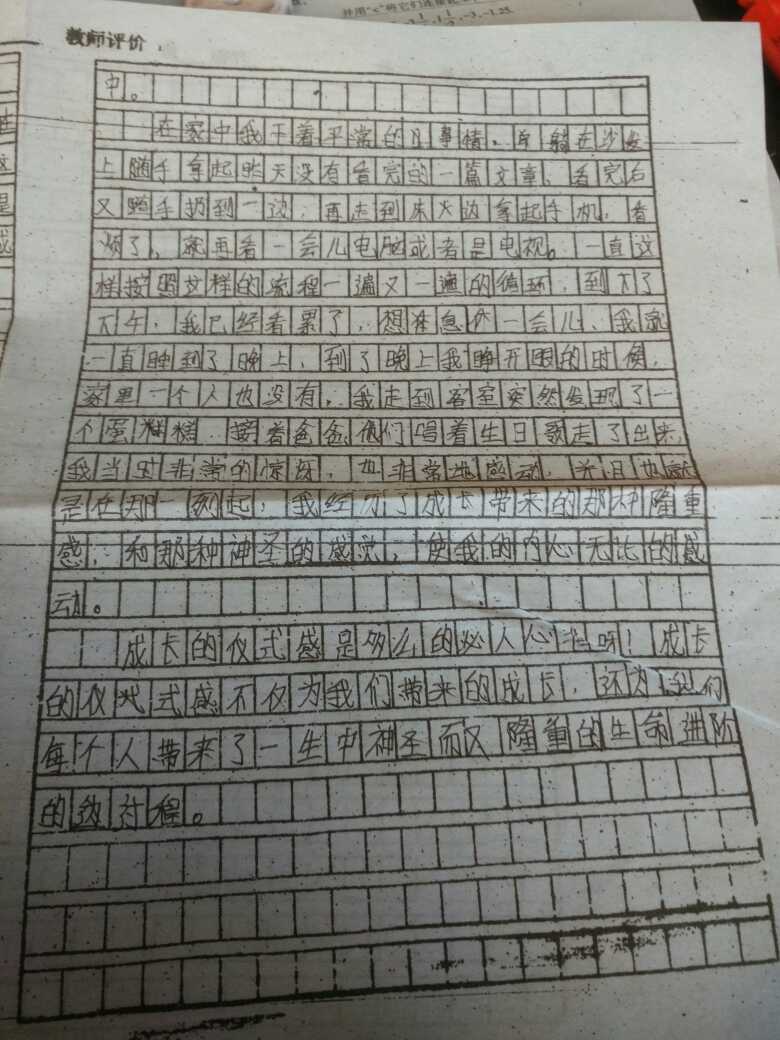 并用"<"将它们连接起
教师评价：
中。
在家中我干着平常的事情。躺在沙发
上随手拿起昨天没有看完的一篇文章，看完后
又随手扔到一边，再走到床边拿起手机，看
烦了，就再看一会儿电脑或者是电视。一直这
样按照这样的流程一遍又一遍的循环，到了
下午，我已经看累了，想休息一会儿，我就
一直睡到了晚上，到了晚上我睁开眼的时候，
家里一个人也没有，我走到客室突然发现了一
个蛋糕，接着爸爸他们唱着生日歌走了出来，
我当时非常的惊讶，也非常地感动，并且也
是在那一刻起，我经历了成长带来的那种隆重
感，和那种神圣的感觉，使我的内心无比的感
动。
成长的仪式感是多么的人心弦呀！成长
的仪式感不仅为我们带来的成长，还为我们
每个人带来了一生中神圣而又隆重的生命进阶
的程。